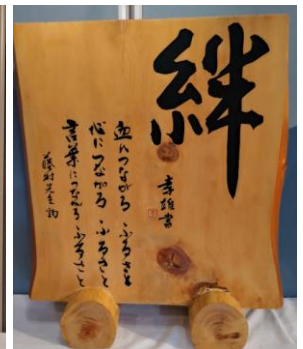 絆
幸雄書
血につながる ふるさと
心につながる ふるさと
言葉につながる ふるさと
藤村先生詞